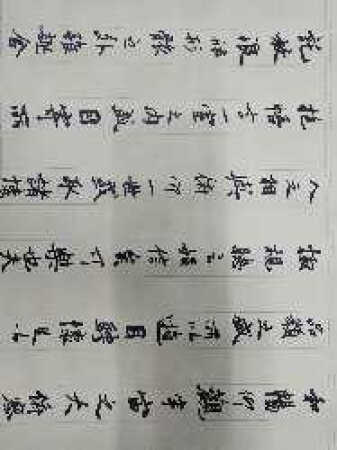 和暢仰觀宇宙之大俯察
品類之盛所以遊目騁懷足以
極視聽之娛信可樂也夫
人之相與俯仰一世或取諸懷
抱悟言一室之內或因寄所
託放浪形骸之外雖趣舍